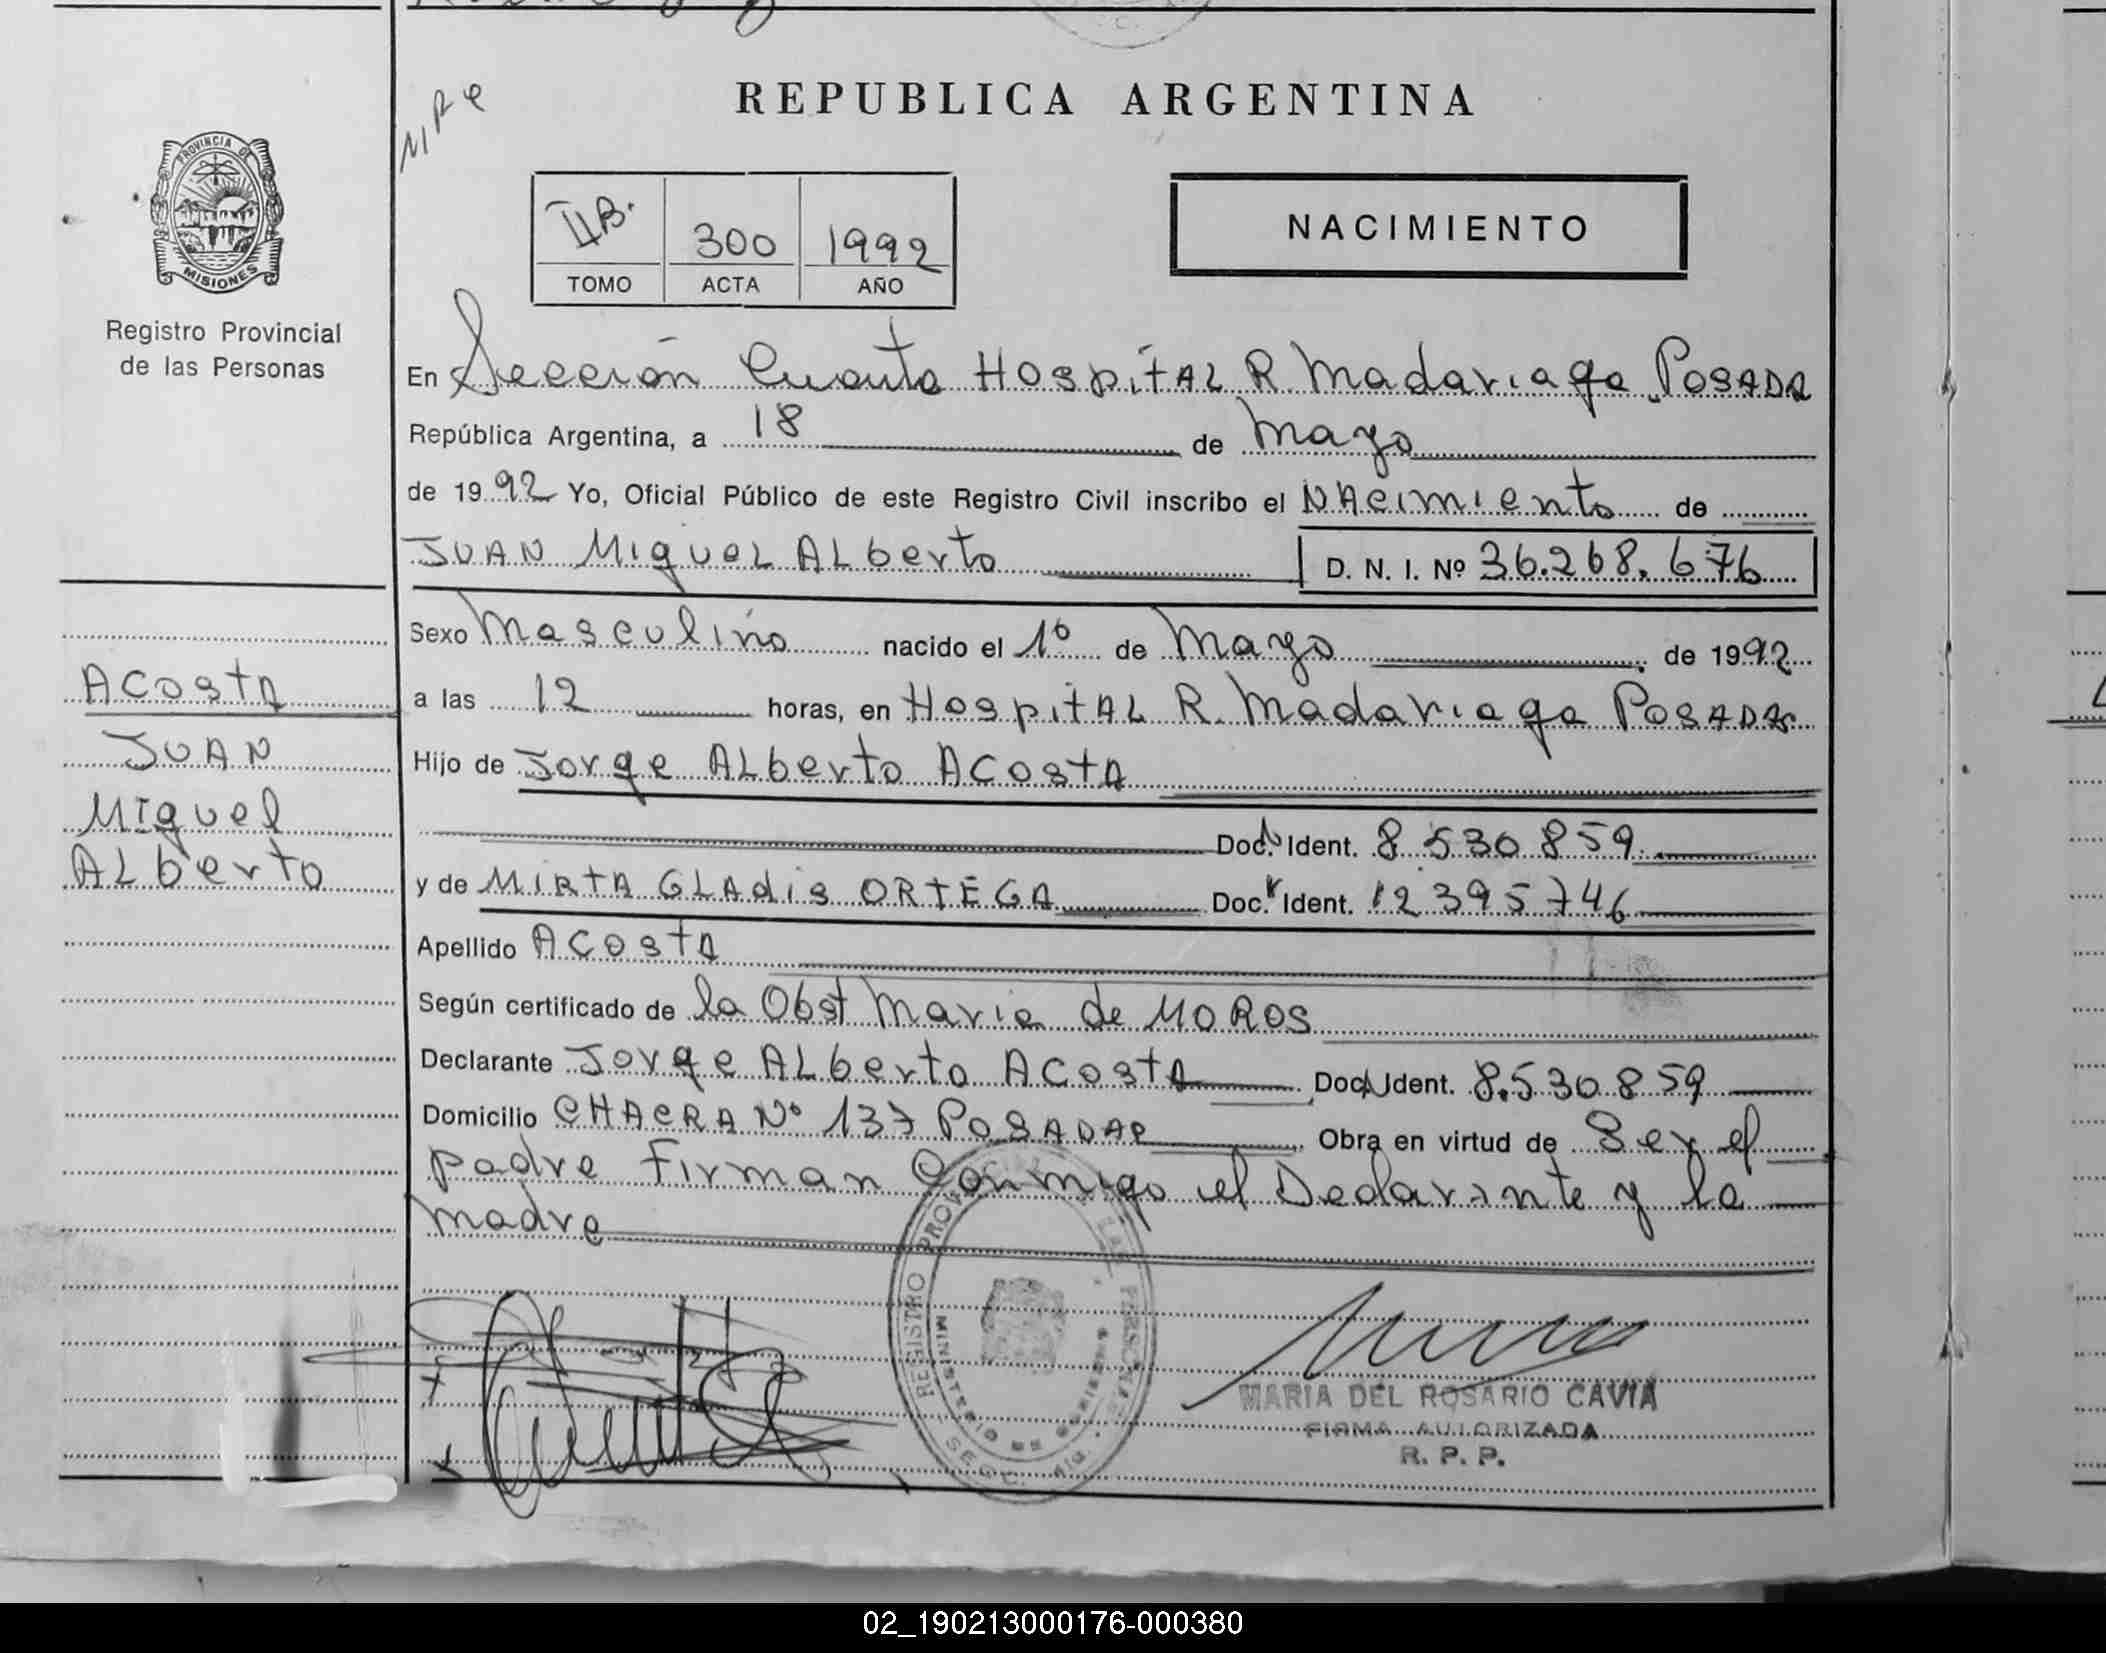 REPUBLICA ARGENTINA
PROVINCIA DE
MISIONES
Registro Provincial
de las Personas
IIB. 300 1992
TOMO ACTA AÑO
NACIMIENTO
En Sección Cuarta Hospital R Madariaga Posada
República Argentina, a 18 de Mayo
de 1992 Yo, Oficial Público de este Registro Civil inscribo el Nacimiento de
JUAN Miguel Alberto D. N. I. Nº 36.268.676
Sexo Masculino nacido el 1º de Mayo de 1992
a las 12 horas, en Hospital R. Madariaga Posadas
Hijo de Jorge Alberto Acosta
Doc. Ident. 8530859
y de MIRTA GLAdis ORTEGA Doc. Ident. 12395746
Apellido Acosta
Según certificado de la Obst Maria de MOROS
Declarante Jorge Alberto Acosta Doc. Ident. 8.530859
Domicilio CHACRA Nº 137 POSADAS Obra en virtud de Ser el
padre Firman Conmigo el Declarante y la
madre
Acosta
JUAN
Miguel
Alberto
REGISTRO PROVINCIAL DE LAS PERSONAS
MINISTERIO DE GOBIERNO
SECC.
MARIA DEL ROSARIO CAVIA
FIRMA AUTORIZADA
R. P. P.
02_190213000176-000380